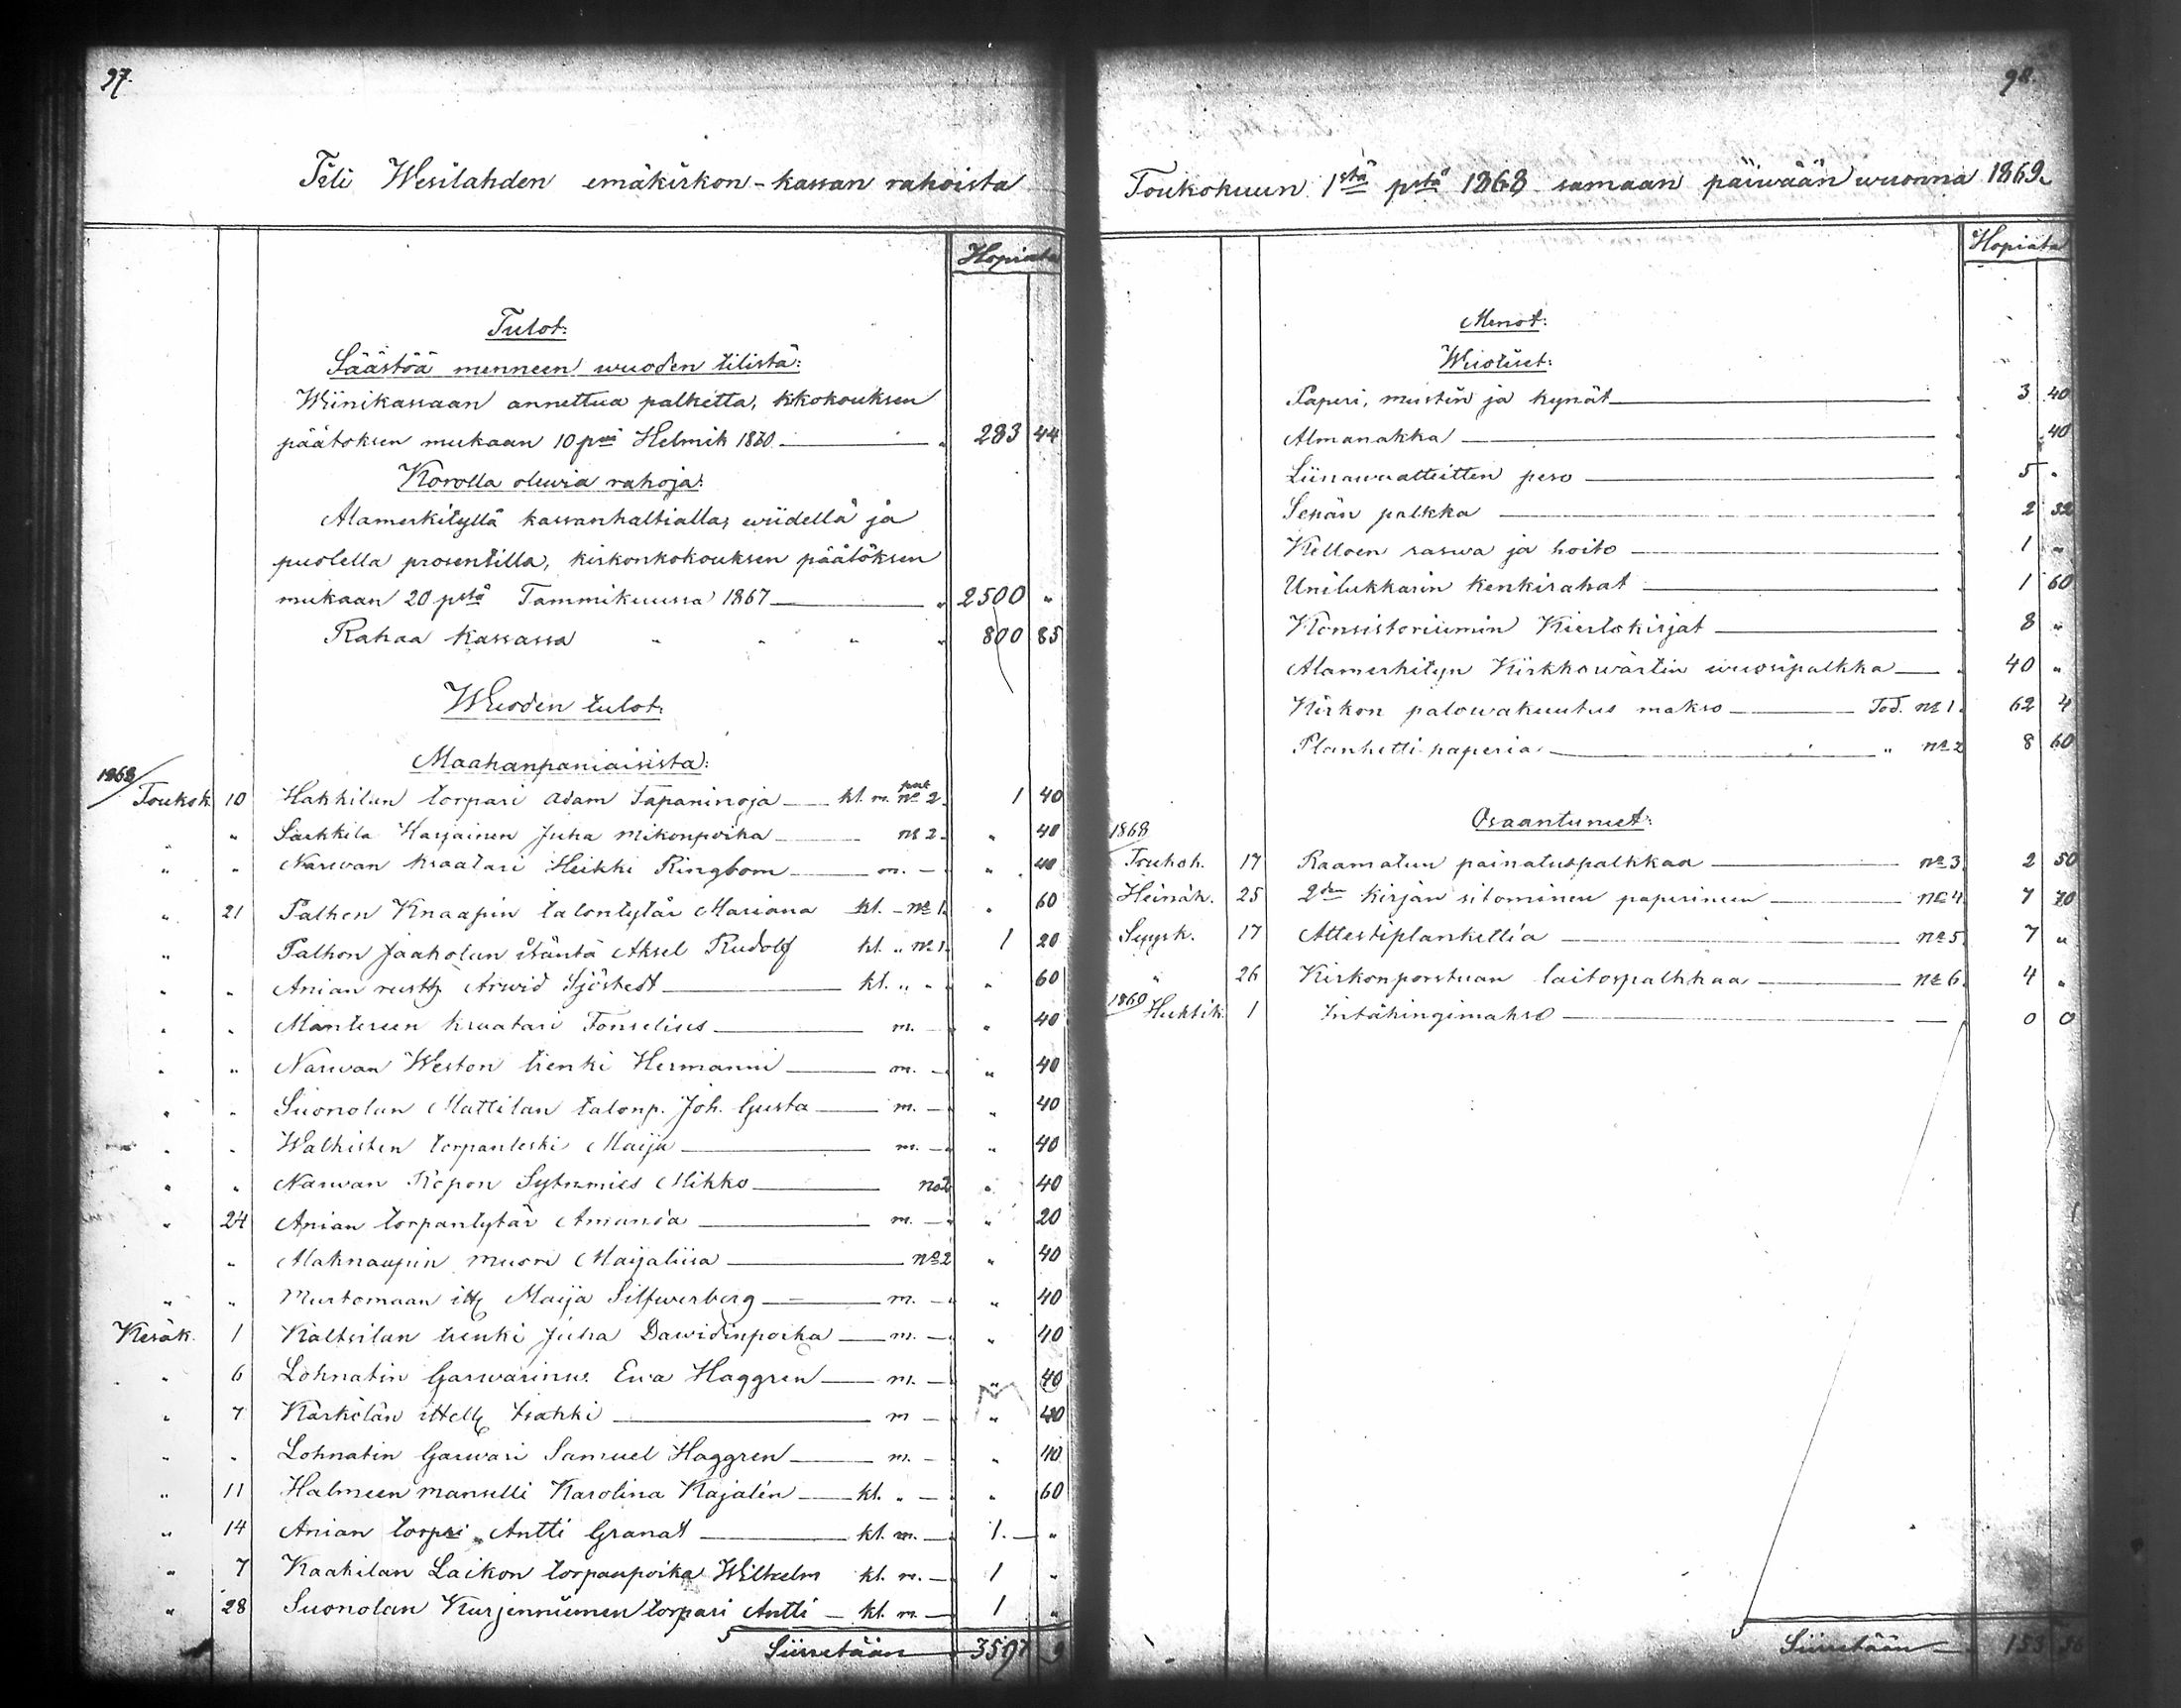 97.
Tili Wesilahden emäkirkon-kassan rahoista
Hopiata
Tulot:
Säästöä menneen wuoden tilistä:
Wiinikassaan annettua palketta, kkokouksen
päätöksen mukaan 10 p Helmik 1820 " 283 44
Korolla olewia rahoja:
Alamerkityllä kassanhaltialla, wiidellä ja
puolella prosentilla, kirkonkokouksen päätöksen
mukaan 20 pstä Tammikuussa 1867 " 2500 "
Rahaa kassassa " " " " 800 85
Wuoden tulot:
Maahanpaniaisista:
1868/
Toukok. 10 Hakkilan torpari Adam Tapaninoja kl. m. No 2. 1 40
" " Sarkkila Harjainen Juha Mikonpoika No 2. " 40
" " Narwan kraatari Heikki Ringbom m. - " 40
" 21 Palhon Knaapin talontytär Mariana kl. - No 1. " 60
" Palhon Jaakolan isäntä Aksel Rudolf kl. " No 1. 1 20
" " Anian rusth Arwid Sjöstedt kl. " - " 60
" " Mantereen kraatari Fonselius m. - " 40
" " Narwan Weston trenki Hermanni m. - " 40
" " Suonolan Mattilan talonp. Joh. Gusta m. - " 40
" " Walkisten torpanleski Maija m. - " 40
" " Narwan Ropon Sytnmies Mikko No 2 " 40
" 24 Anian torpantytär Amanda m. - " 20
" Alaknaapin muori Maijaliisa No 2 " 40
" " Murtomaan itt Maija Silfwerberg m. - " 40
Kesäk. 1 Kaltsilan trenki Juha Dawidinpoika m. - " 40
" 6 Lohnatin Garwarinw. Ewa Haggren m. - " 40
" 7 Kärkölän ittell Isakki m - " 40
" " Lohnatin Garwari Samuel Haggren m. - " 40
" 11 Halmeen manselli Karolina Kajalén kl. " - " 60
" 14 Anian torpri " Antti Granat kl. m. - 1. - "
" 7 Kaakilan Laikon torpanpoika Wilhelm kl. m. - 1 "
" 28 Suonolan Kurjenniemen torpari Antti - kl. m. - 1 "
Siirretään 3597 9
98.
Toukokuun 1stä pstä 1868 samaan päiwään wuonna 1869.
Hopiata
Menot:
Wuotiset:
Paperi, mustin ja kynät 3 40
Almanakka " 40
Liinawaatteitten peso 5 "
Sepän palkka 2 32
Kelloen raswa ja hoito 1 "
Unilukkarin kenkirahat 1 60
Konsistoriumin Kiertokirjat 8 "
Alamerkityn Kirkkowärtin wuosipalkka 40 "
Kirkon palowakuutus makso Tod. No 1. 62 4
Planketti paperia " No 2 8 60
Osaantuneet:
1868
Toukok. 17 Raamatun painatuspalkkaa No 3. 2 50
Heinäk. 25 2den kirjan sitominen paperineen No 4. 7 70
Syysk. 17 Attestiplankettia No 5. 7 "
" 26 Kirkonporstuan laitospalkkaa No 6. 4 "
1869 Huhtik. 1 Intähingimakso 0 0
Siirretään 153 56